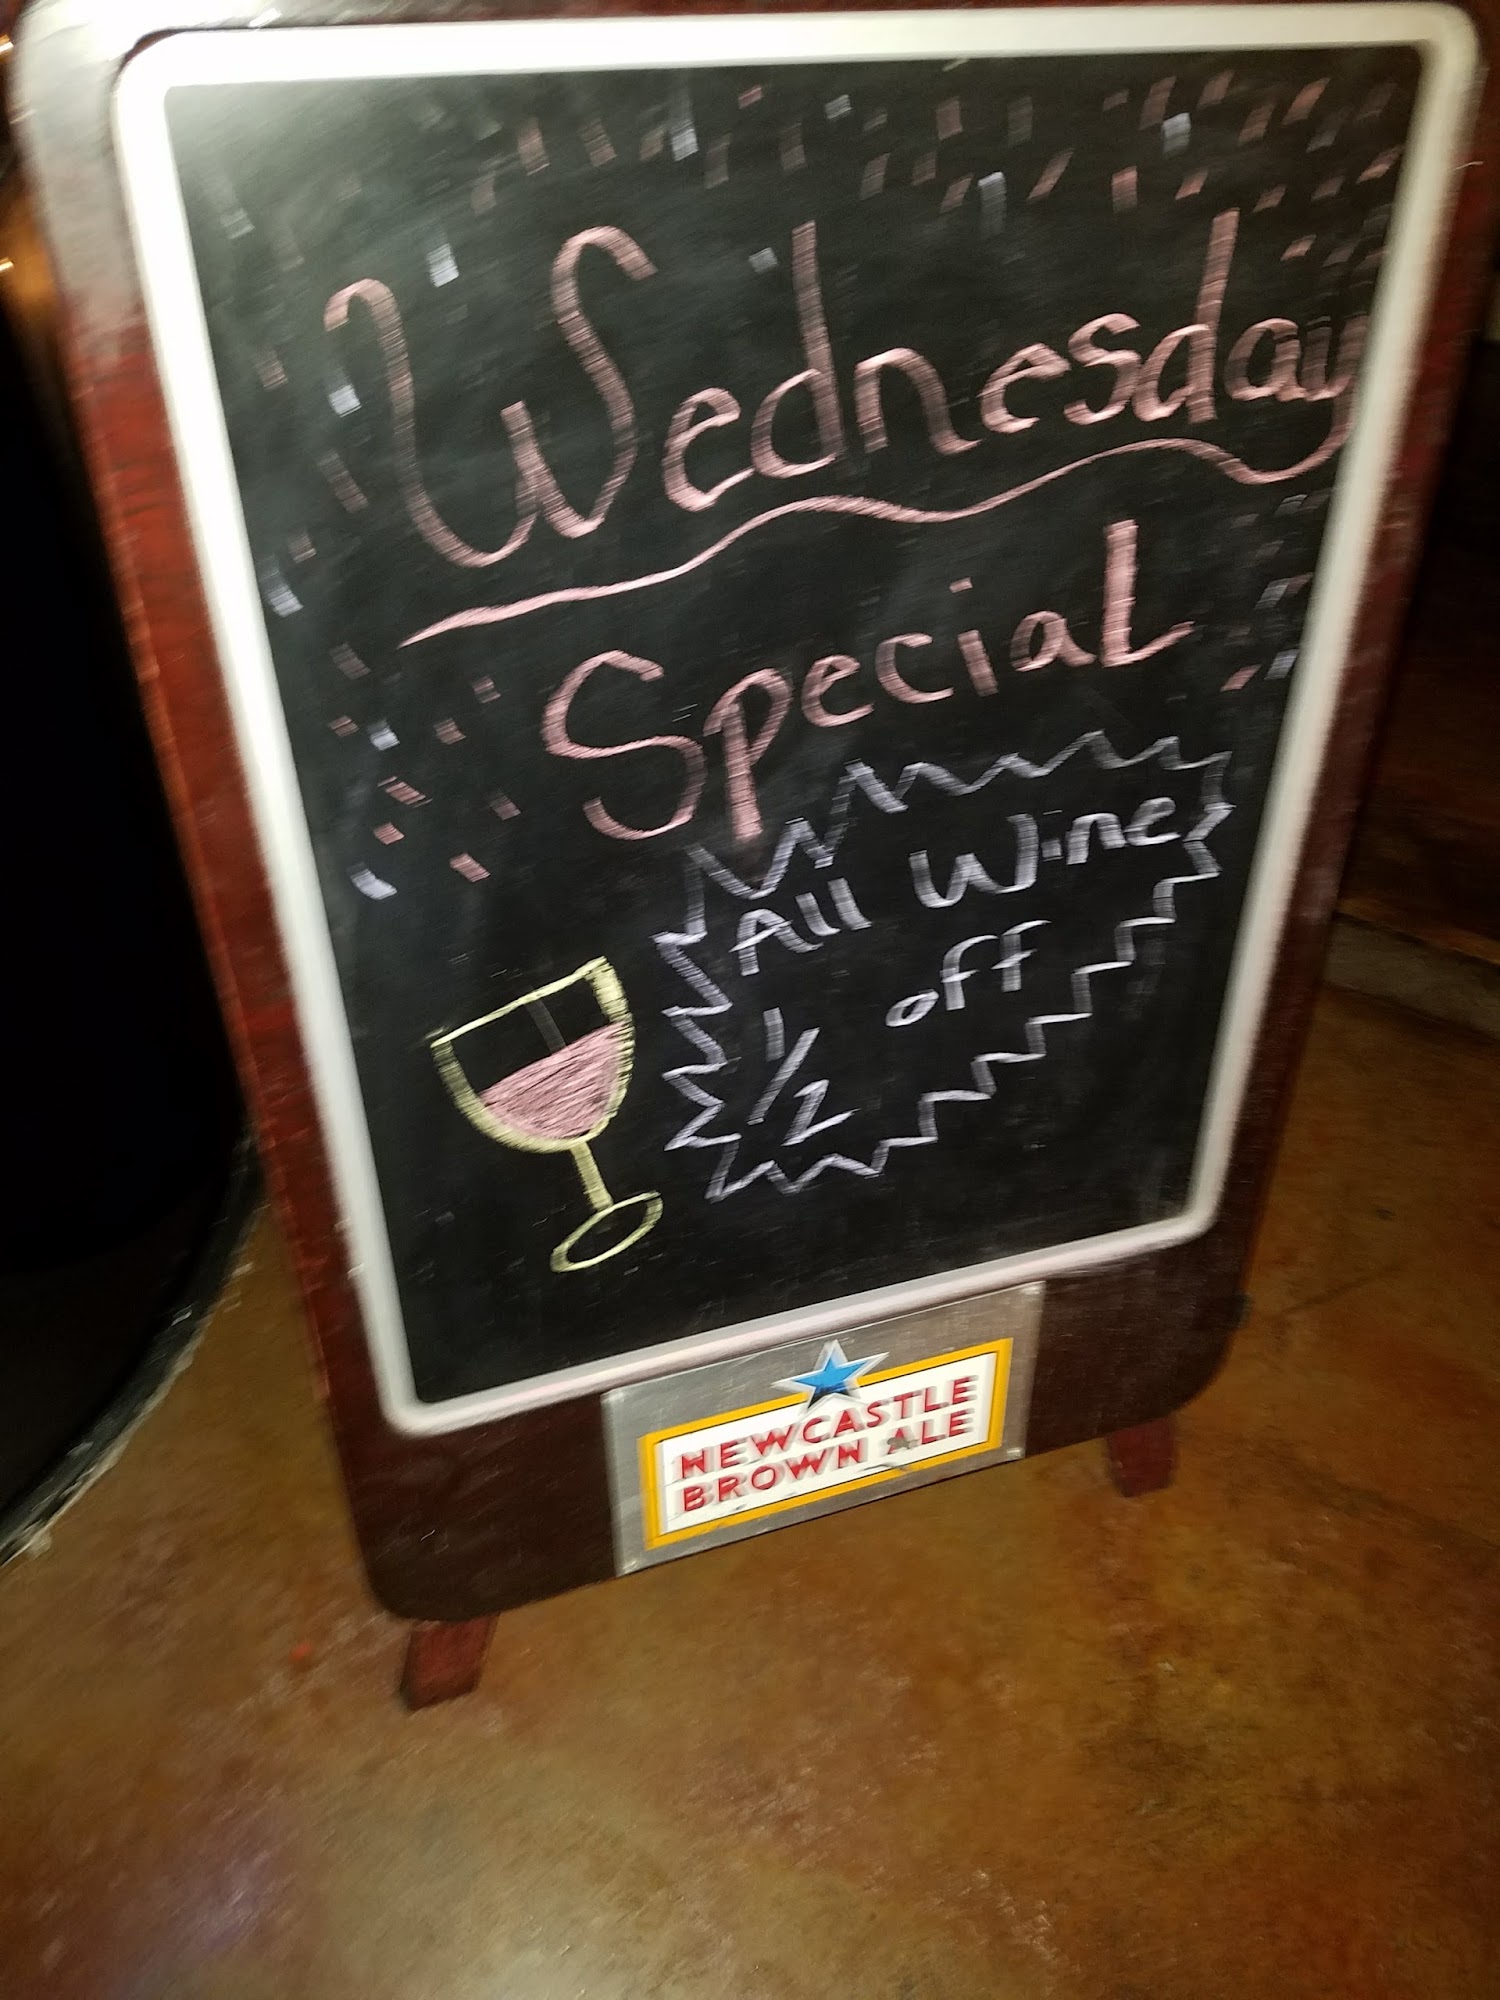 Wednesday
Special
All Wine
1/2 off
NEWCASTLE
BROWN ALE